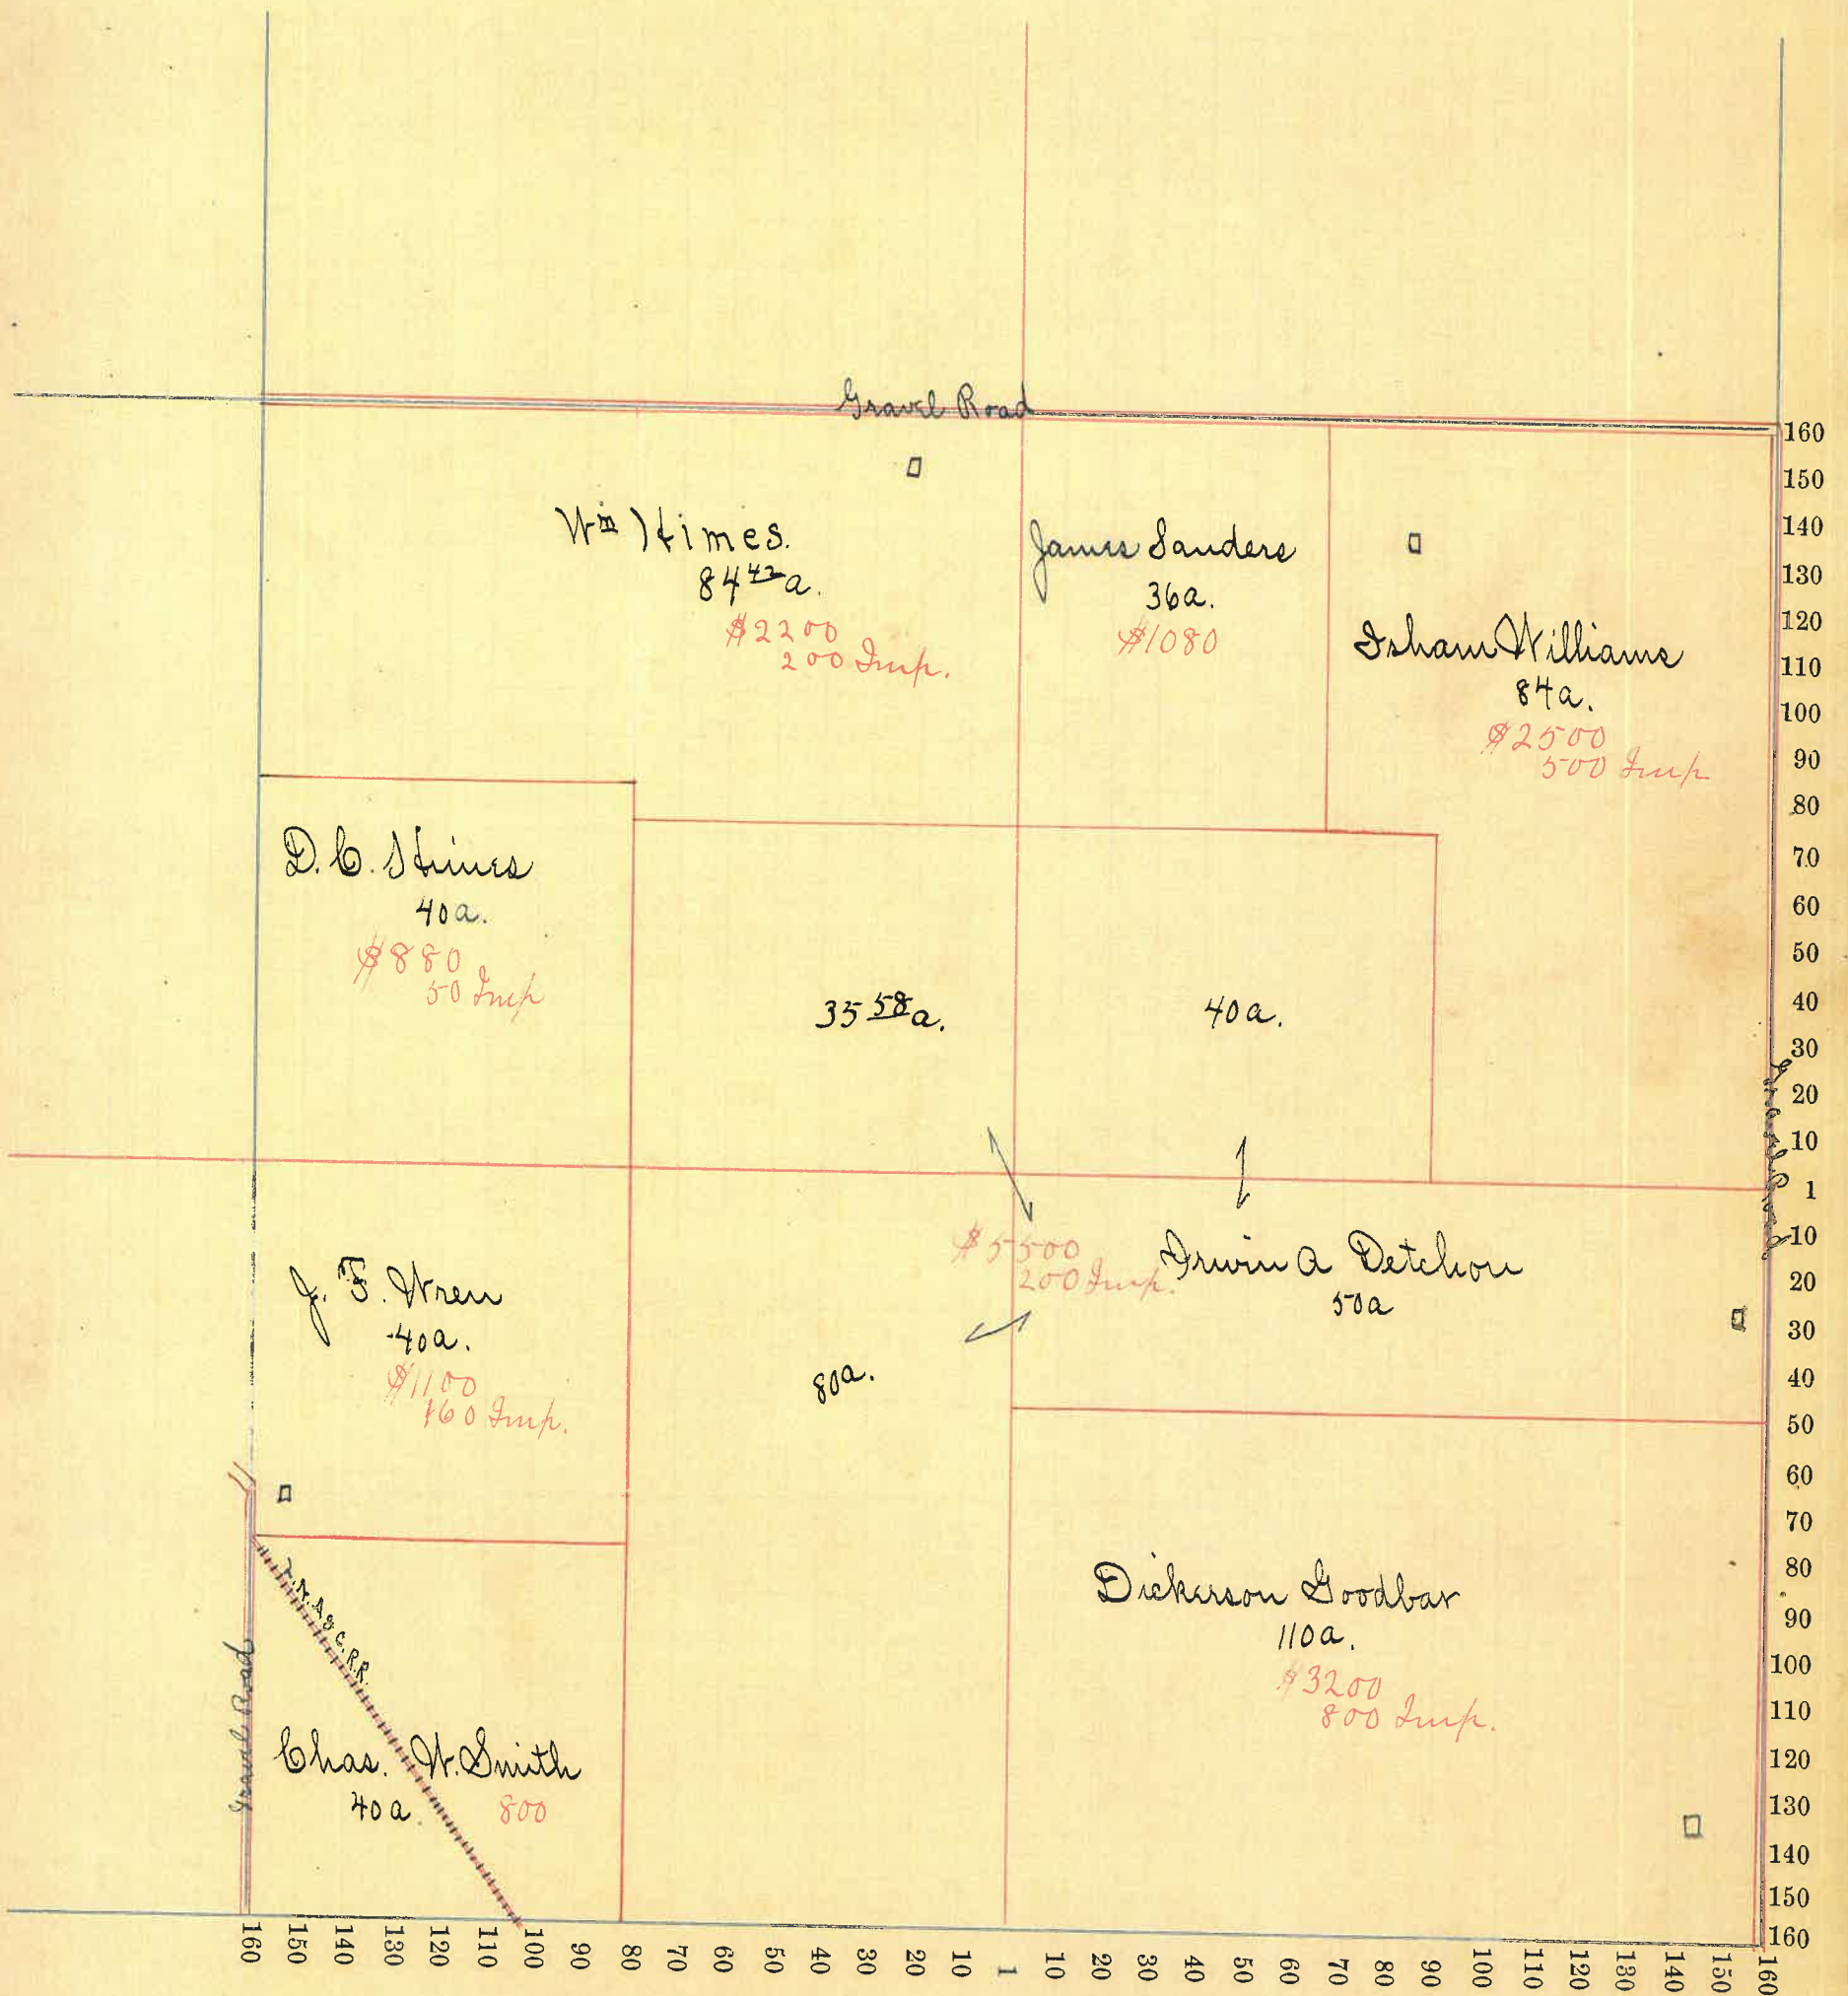 Gravel Road
Wm Himes.
84 42 a.
$2200
200 Imp.
James Sanders
36a.
$1080
Isham Williams
84a.
$2500
500 Imp
D. C. Himes
40a.
$880
50 Imp
35 58 a.
40a.
J. F. Wren
40a.
$1100
160 Imp.
80a.
$5500
200 Imp.
Irwin A Detchon
50a
Gravel Road
L.N.A & C.R.R.
Gravel Road
Chas. W. Smith
40a. 800
Dickerson Goodbar
110a.
$3200
800 Imp.
160
150
140
130
120
110
100
90
80
70
60
50
40
30
20
10
1
10
20
30
40
50
60
70
80
90
100
110
120
130
140
150
160
160 150 140 130 120 110 100 90 80 70 60 50 40 30 20 10 1 10 20 30 40 50 60 70 80 90 100 110 120 130 140 150 160